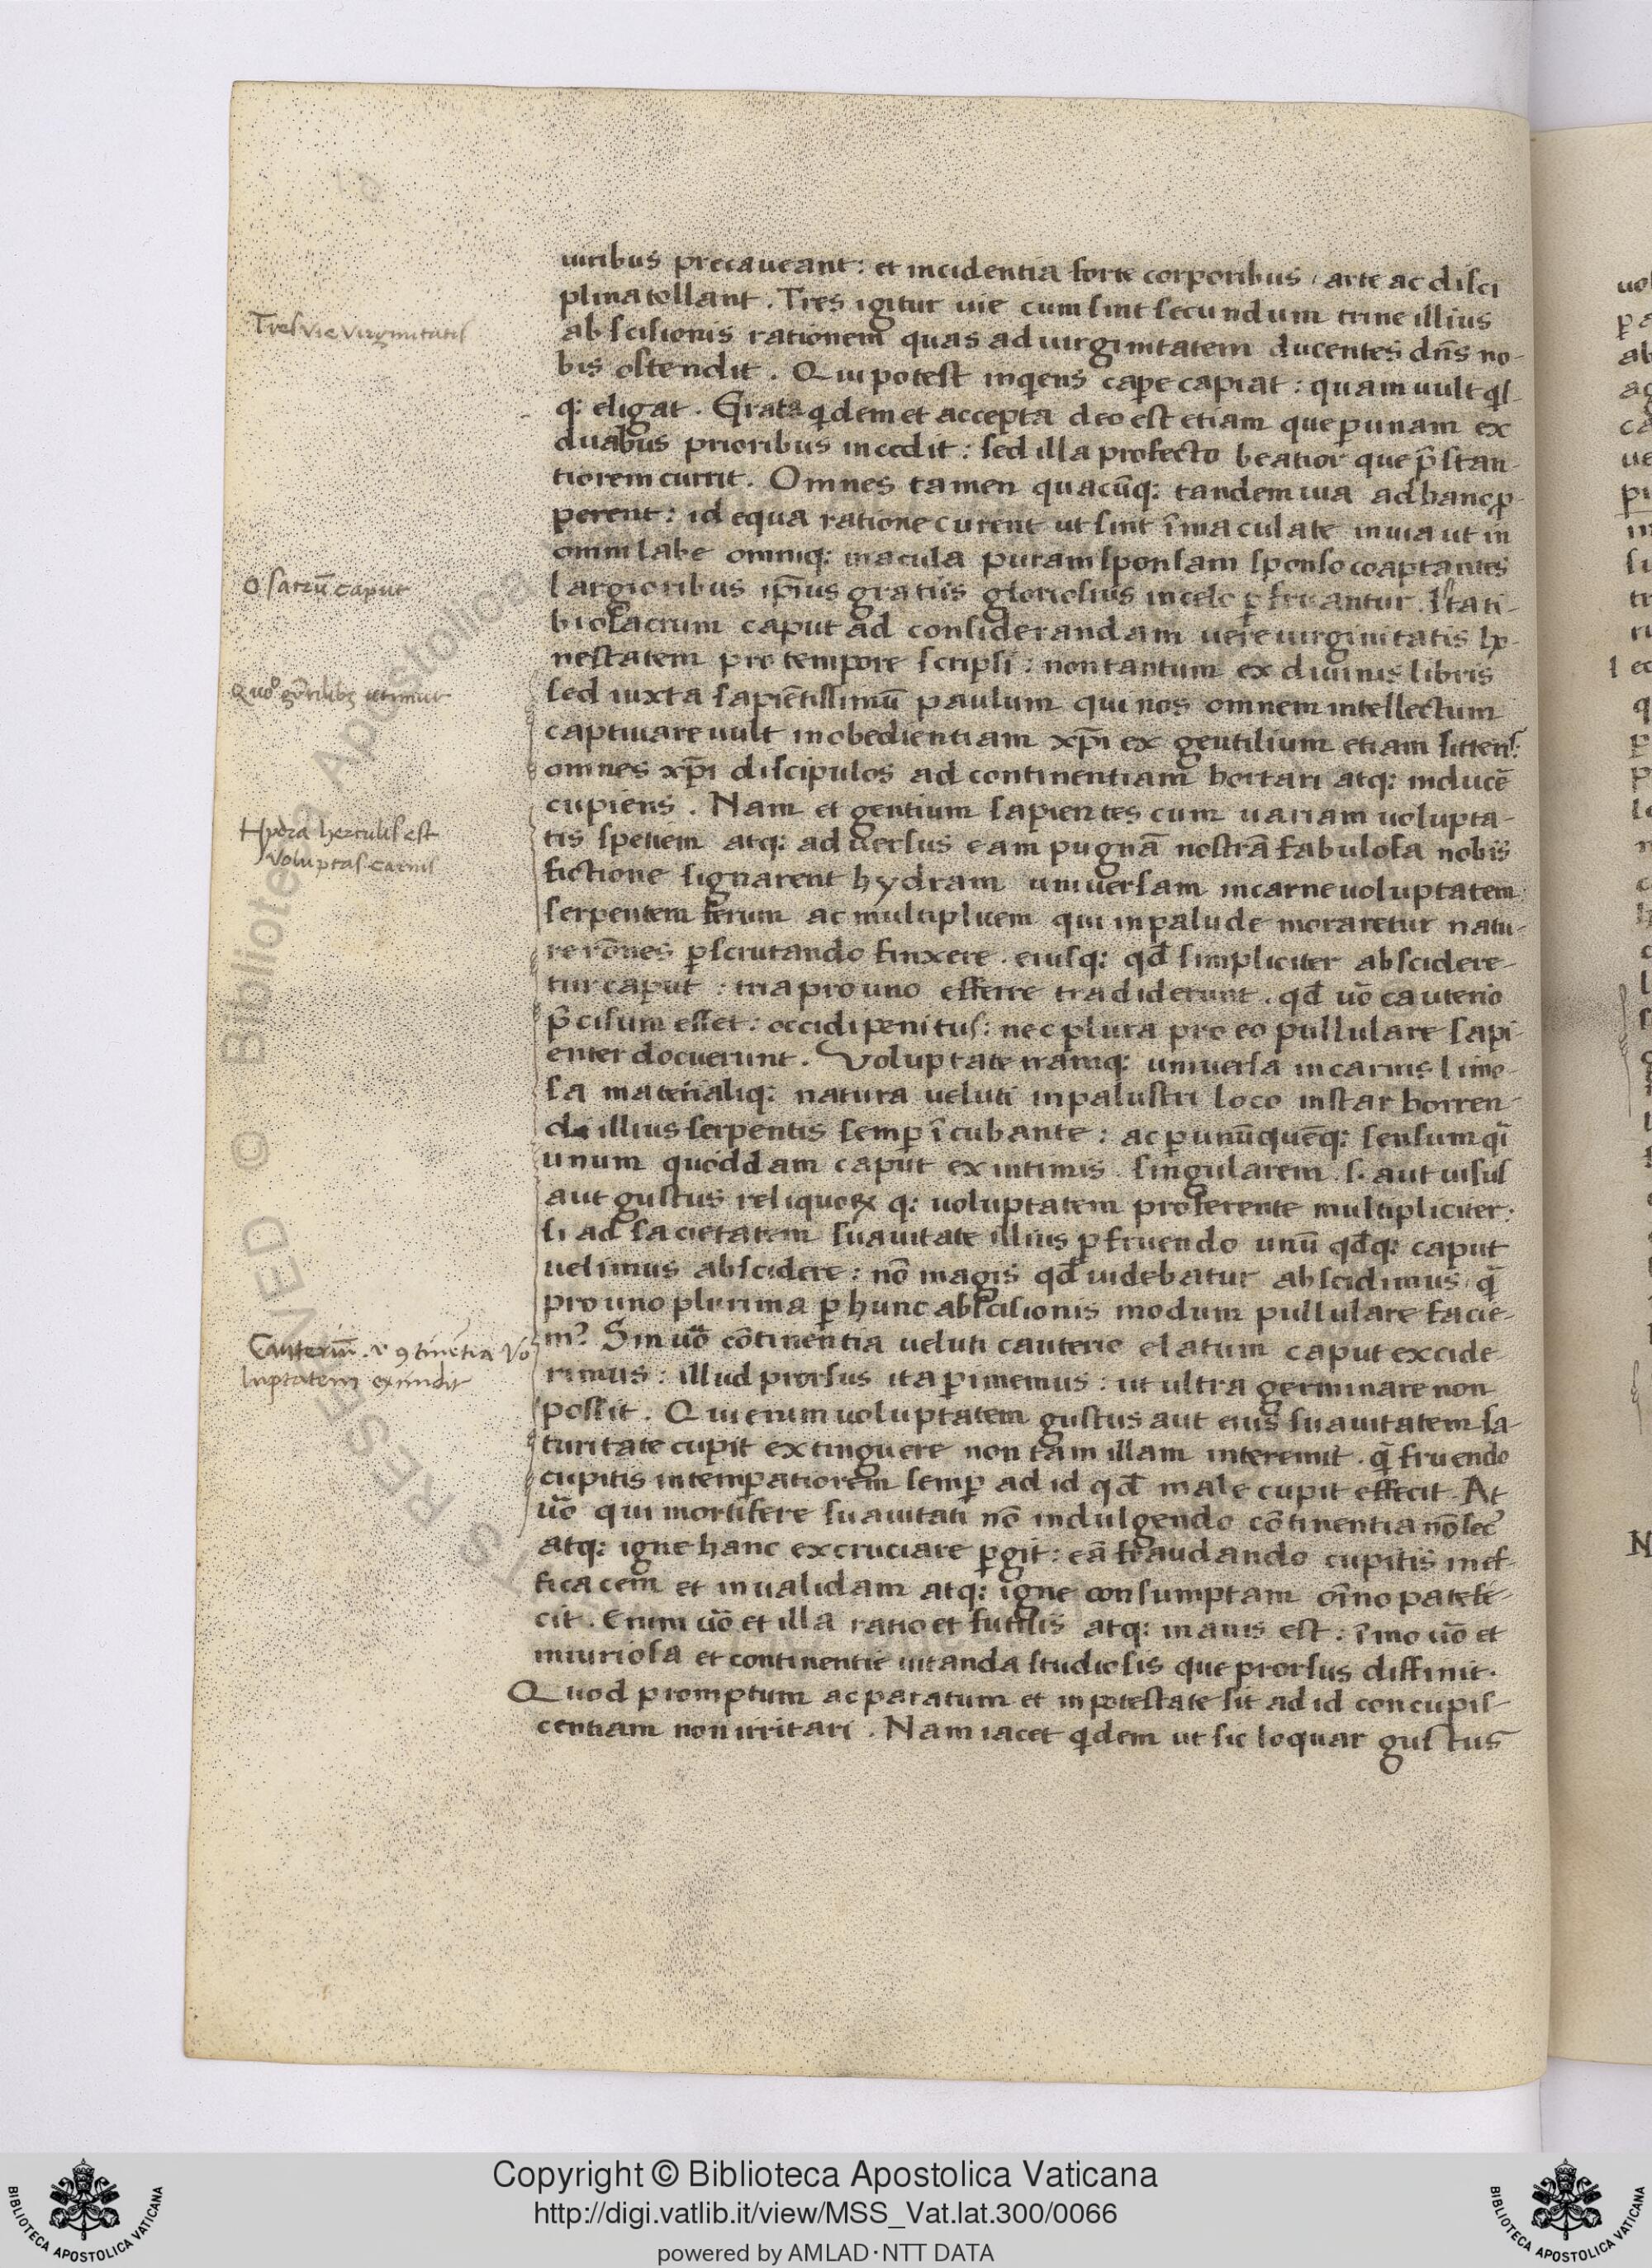 uiribus precaueant: et incidentia forte corporibus, arte ac disci
plina tollant. Tres igitur uie cum sint secundum trine illius
Tres vie virginitatis
abscisionis rationem quas ad uirginitatem ducentes dn̄s no-
bis ostendit. Qui potest inqͥens cap̲e capiat: quam uult qͥs-
q: eligat. Grata qͥdem et accepta deo est etiam que p̲ unam ex
duabus prioribus incedit: sed illa profecto beatior que p̄stan-
tiorem currit. Omnes tamen quacūq: tandem uia ad hanc ꝓ-
perent: id equa ratione curent ut sint īmaculate in uia ut in
omni labe omniq: macula puram sponsam sponso coaptantes
O sacrū caput
largioribus ip̄ius gratiis gloriosius in celo p̲fruantur. Ita ti-
bi o sacrum caput ad considerandam uere uirginitatis ho-
nestatem pro tempore scripsi: non tantum ex diuinis libris
Quoͦ gentilibꝫ utimur
sed iuxta sapiētissimū paulum qui nos omnem intellectum
captiuare uult in obedientiam xp̄i ex gentilium etiam litteris:
omnes xp̄i discipulos ad continentiam hortari atq: inducē
cupiens. Nam et gentium sapientes cum uariam uolupta-
Hydra herculis est
voluptas carnis
tis spetiem atq: aduersus eam pugnā nostrā fabulosa nobis
fictione signarent hydram uniuersam in carne uoluptatem
serpentem ferum ac multipluem qui in palude moraretur natu-
re rōnes p̲scrutando finxere. eiusq: qd̄ simpliciter abscidere-
tur caput: tria pro uno efferre tradiderunt. qd̄ uō cauterio
p̄cisum esset: occidi penitus: nec plura pro eo pullulare sapi-
enter docuerunt. Voluptate namq: uniuersa in carnis limo-
sa materialiq: natura ueluti in palustri loco instar horren-
di illius serpentis semp̲ īcubante: ac p̲ unūquēq: sensum qͣi
unum quoddam caput ex intimis singularem .s. aut uisus
aut gustus reliquoꝝ q: uoluptatem proferente multipliciter:
si ad sacietatem suauitate illius p̲fruendo unū qd̄q: caput
uelimus abscidere: nō magis qd̄ uidebatur abscidimus, qͣ
pro uno plurima p̲ hunc abscisionis modum pullulare facie-
Cauteriū .i. ꝯtinētia vo
luptatem extindit
mꝰ. Sin uō cōtinentia ueluti cauterio elatum caput excide-
rimus: illud prorsus ita p̲imemus: ut ultra germinare non
possit. Qui enim uoluptatem gustus aut eius suauitatem sa-
turitate cupit extinguere non tam illam interemit. qͣ fruendo
cupitis intemp̲atiorem semp̲ ad id qd̄ male cupit effecit. At
uō qui mortifere suauitati nō indulgendo cōtinentia nō sec
atq: igne hanc excruciare p̲git: eā fraudando cupitis inef-
ficacem et inualidam atq: igne consumptam om̄no patefe-
cit. Enim uō et illa ratio et futilis atq: inanis est: īmo uō et
iniuriosa et continentie uitanda studiosis que prorsus diffinit.
Quod promptum ac paratum et in potestate sit ad id concupis-
centiam non irritari. Nam iacet qͥdem ut sic loquar gustus
RESERVED © Biblioteca Apostolica
Copyright © Biblioteca Apostolica Vaticana
http://digi.vatlib.it/view/MSS_Vat.lat.300/0066
powered by AMLAD·NTT DATA
BIBLIOTECA APOSTOLICA VATICANA
BIBLIOTECA APOSTOLICA VATICANA